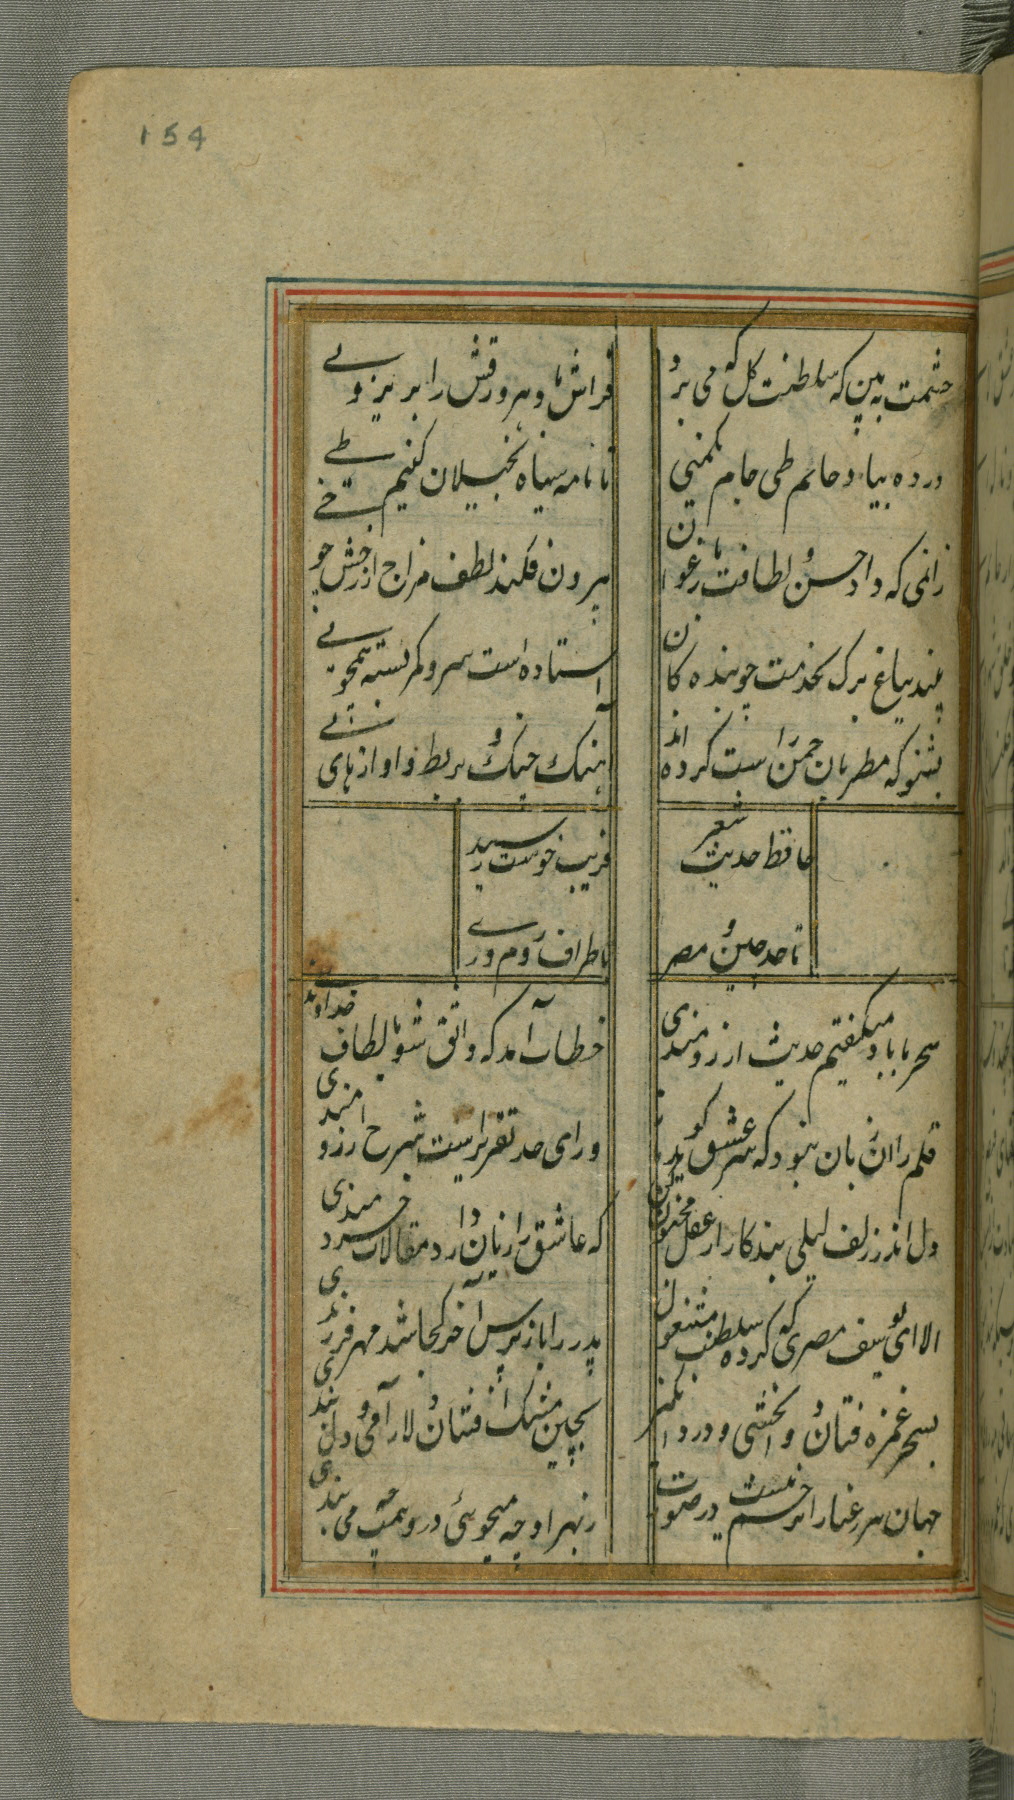 154
حشمت ببین که سلطنت گل که می برد
فراش باد هر ورقش را بزیر پی
در ده بیاد حاتم طی جام یکمنی
تا نامه سیاه بخیلان کنیم طی
زانمی که داد حسن و لطافت بارغوان
بیرون فکند لطف مزاج از رخش خوی
مسند بباغ بر که بخدمت چو بنده کان
استاده است سرو و کمر بسته همچو نی
بشنو که مطربان چمن راست کرده اند
آهنگ چنگ و بربط و آوازهای نی
حافظ حدیث شعر
فریب خوشت رسید
تا حد چین و مصر
باطراف روم و ری
سحر با باد میگفتم حدیث آرزومندی
خطاب آمد که واثق شو بالطاف خداوندی
قلم را آن زبان نبود که سر عشق گوید باز
ورای حد تقریرست شرح آرزومندی
دل اندر زلف لیلی بند کار از عقل مجنون کن
که عاشق را زیان دارد مقالات خردمندی
الا ای یوسف مصری که کرده سلطنت مشغول
پدر را باز پرس آخر کجا شد مهر فرزندی
بسحر غمزه فتان دوا بخشی و درد انگیز
بچین زلف مشک افشان دلارامی و دلبندی
جهان